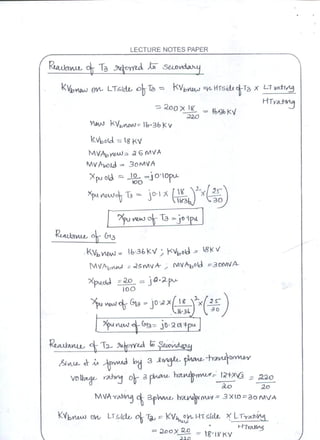 LECTURE NOTES PAPER
Reactance of T3 referred to secondary
KVbnew on LTside of T3 = KVbnew on HTside of T3 X LT rating
HTrating
= 200 X 18 = 16.36 KV
220
new KVbnew = 16.36 KV
KVbold = 18 KV
MVAbnew = 25 MVA
MVAbold = 30MVA
Xpu old = 10 = j0.10pu
100
Xpu new of T3 = j0.1 X (18/16.36)² X (25/30)
Xpu new of T3 = j0.1pu
Reactance of G3
KVbnew = 16.36 KV ; KVbold = 18KV
MVAbnew = 25MVA ; MVAbold = 30MVA
Xpuold = 20 = j0.2pu
100
Xpu new of G3 = j0.2 X (18/16.36)² X (25/30)
Xpu new of G3 = j0.201pu
Reactance of T2 referred to secondary
Since it is formed by 3 single phase transformer
voltage rating of 3 phase transformer = 127X√3 = 220
20 20
MVA rating of 3 phase transformer = 3X10 = 30MVA
KVbnew on LTside of T2 = KVb on HTside X LTrating
HTrating
= 200 X 20 = 18.18 KV
220